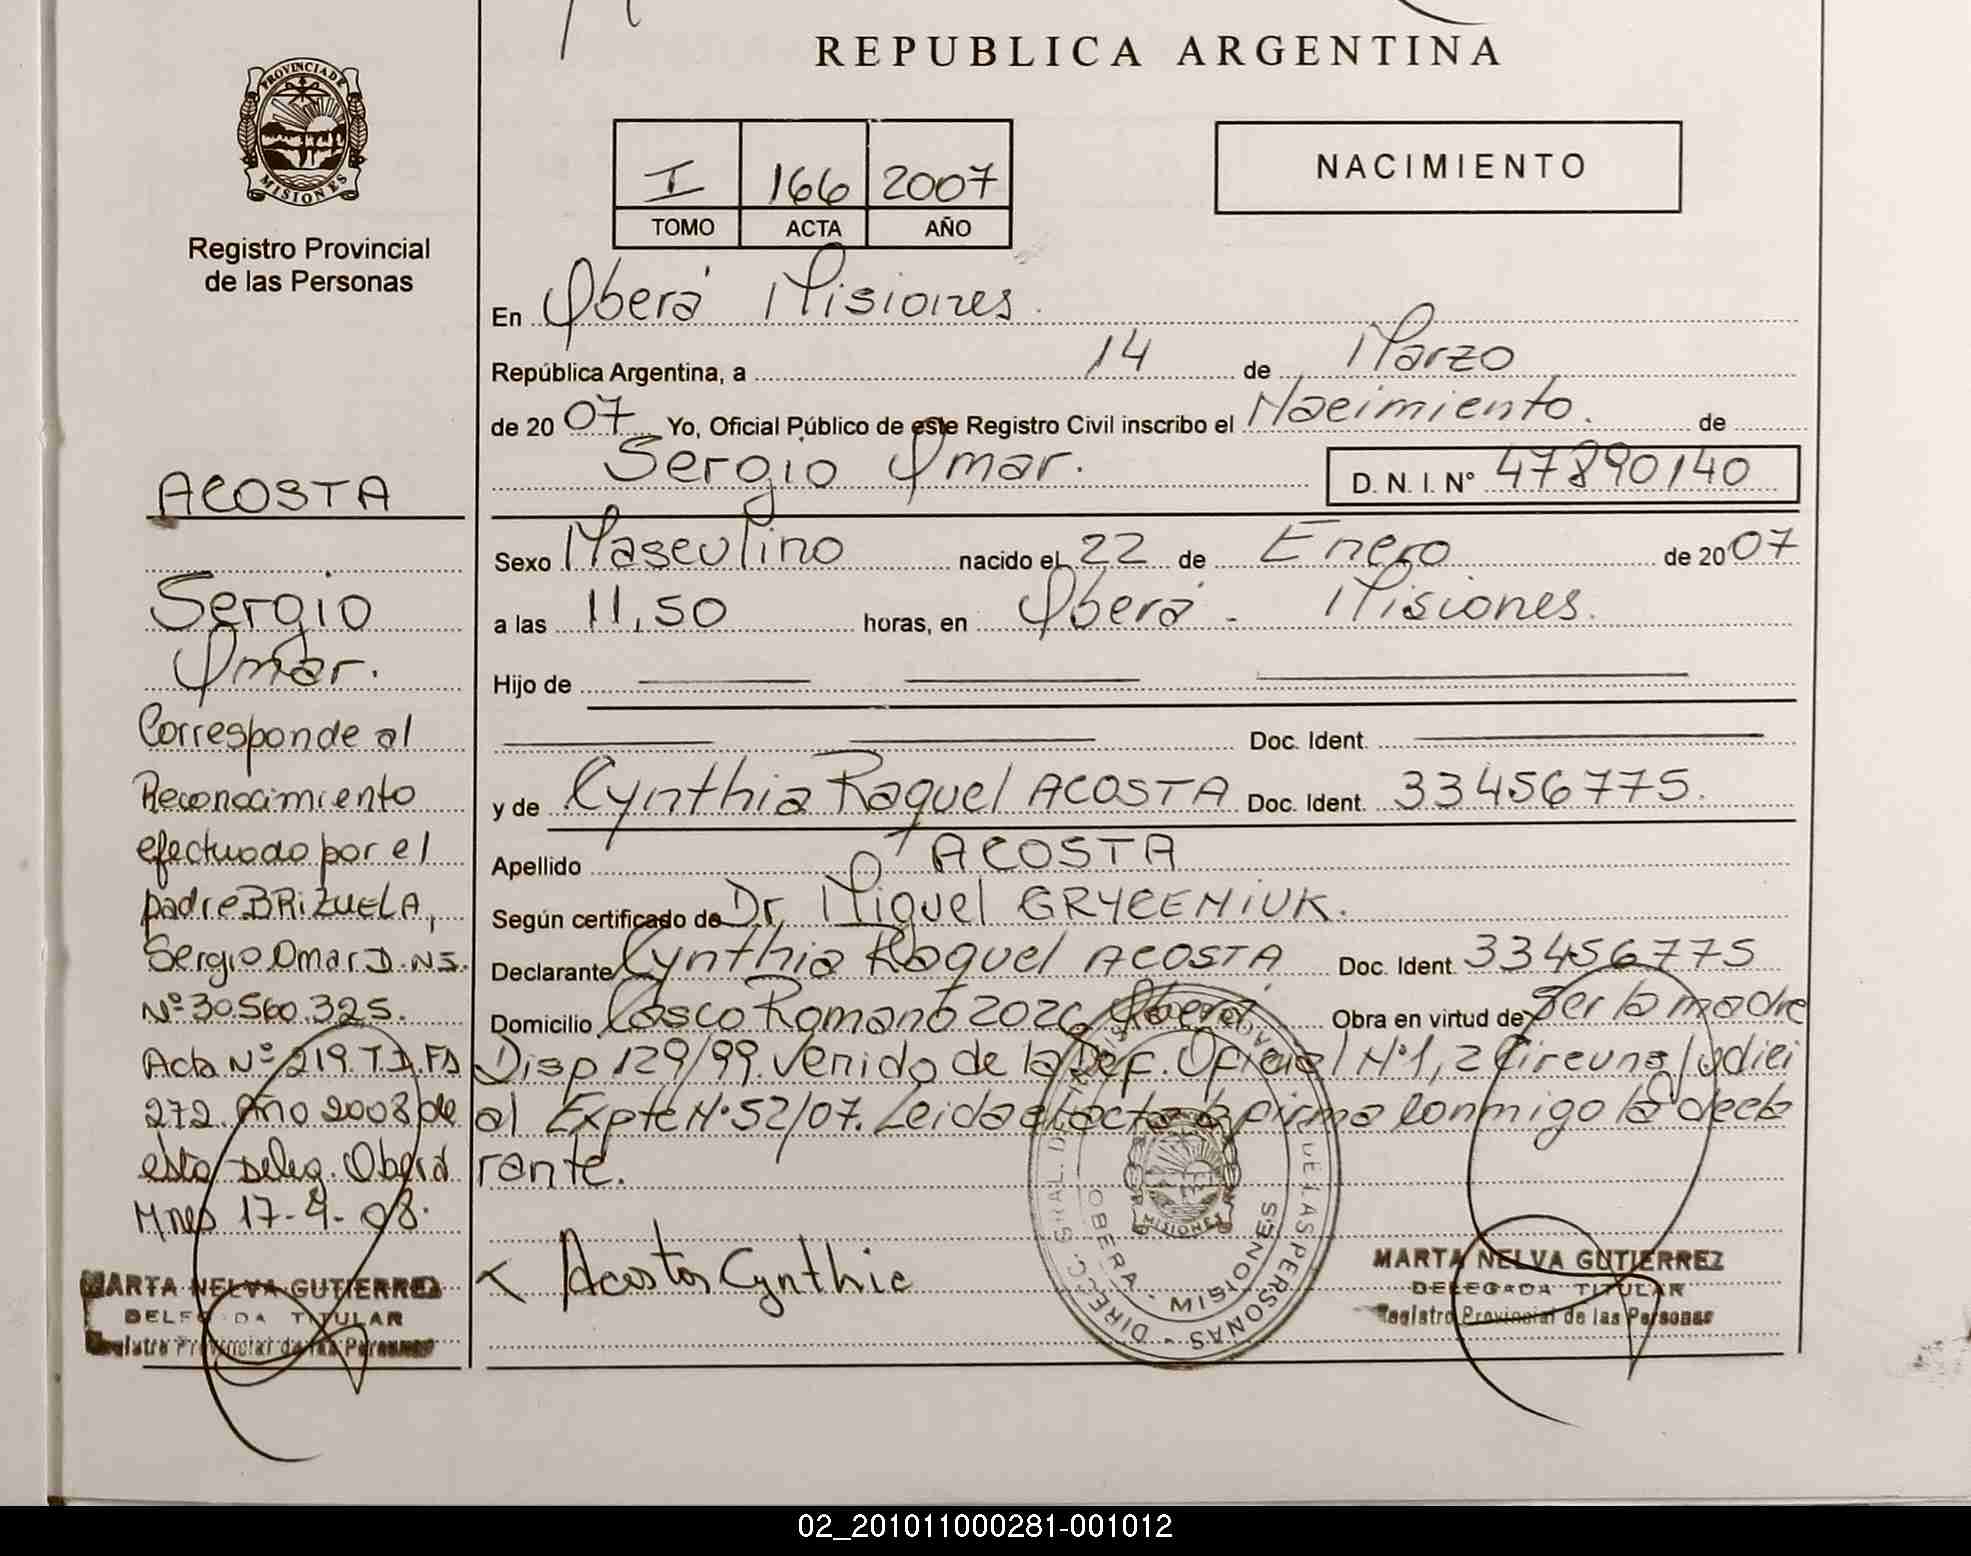 REPUBLICA ARGENTINA
PROVINCIA DE
MISIONES
Registro Provincial
de las Personas
I 166 2007
TOMO ACTA AÑO
NACIMIENTO
En Oberá Misiones.
República Argentina, a 14 de Marzo
de 2007 Yo, Oficial Público de este Registro Civil inscribo el Nacimiento. de
Sergio Omar. D. N. I. N° 47890140
Sexo Masculino nacido el 22 de Enero de 2007
a las 11,50 horas, en Oberá - Misiones.
Hijo de
Doc. Ident.
y de Cynthia Raquel ACOSTA Doc. Ident. 33456775.
Apellido ACOSTA
Según certificado de Dr. Miguel GRYCENIUK.
Declarante Cynthia Raquel ACOSTA Doc. Ident. 33456775
Domicilio Casco Romano 2026 Oberá. Obra en virtud de Ser la madre
Disp 129/99. Venido de la Def. Oficial N°1, 2 Circuns Judici
al Expte N°52/07. Leida el acta la firma conmigo la decla
rante.
Acosta Cynthia
MARTA NELVA GUTIERREZ
DELEGADA TITULAR
Registro Provincial de las Personas
ACOSTA
Sergio
Omar.
Corresponde al
Reconocimiento
efectuado por el
padre BRIZUELA,
Sergio Omar D.N.I.
N° 30.560.325.
Acta N° 219. T.I. Fº
272. Año 2008 de
esta Deleg. Oberá
Mnes 17-4-08.
MARTA NELVA GUTIERREZ
DELEGADA TITULAR
Registro Provincial de las Personas
DE LAS PERSONAS - DIRECC. GRAL. DE
OBERA - MISIONES
MISIONES
02_201011000281-001012